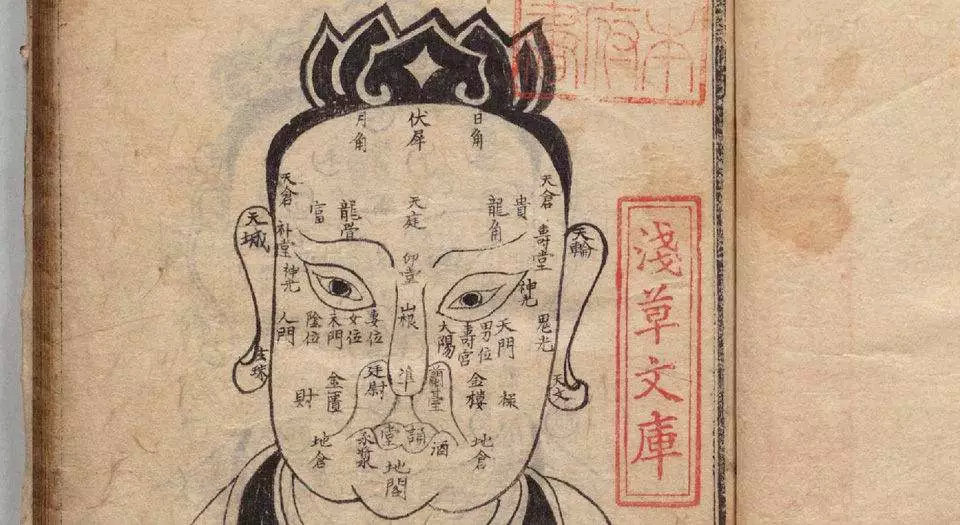 月角
伏犀
日角
天倉
富
龍骨
天庭
龍角
貴
天倉
天城
神光
印堂
壽堂
天輪
神光
人門
陰位
末門
女位
妻位
山根
太陽
壽宮
男位
天門
鬼光
垂珠
財
金匱
廷尉
準
蘭臺
金樓
地倉
承漿
堂
酒
地倉
地閣
淺草文庫